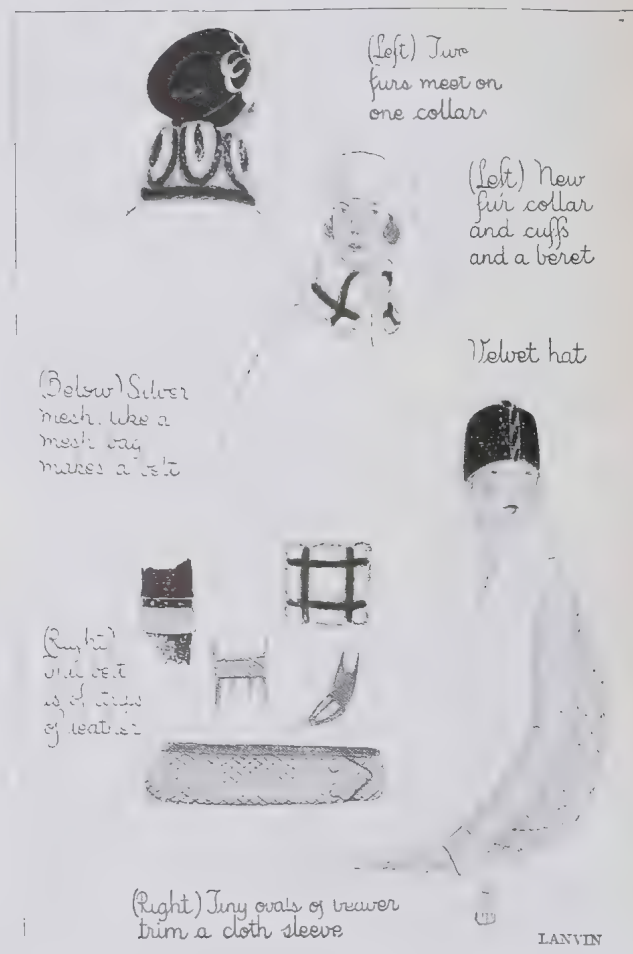 (Left) Two
furs meet on
one collar
(Left) New
fur collar
and cuffs
and a beret
Velvet hat
(Below) Silver
mesh, like a
mesh bag
makes a belt
(Right)
belt
is of strips
of leather
(Right) Tiny ovals of beaver
trim a cloth sleeve
LANVIN